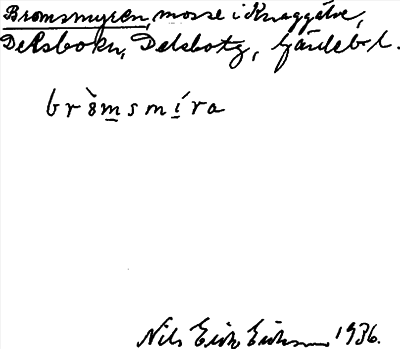 Bromsmyren, mosse i Knaggälve,
Delsboku, Delsbotg, fjärdebl.
brò̀msmíra
Nils Erik Eriksson 1936.